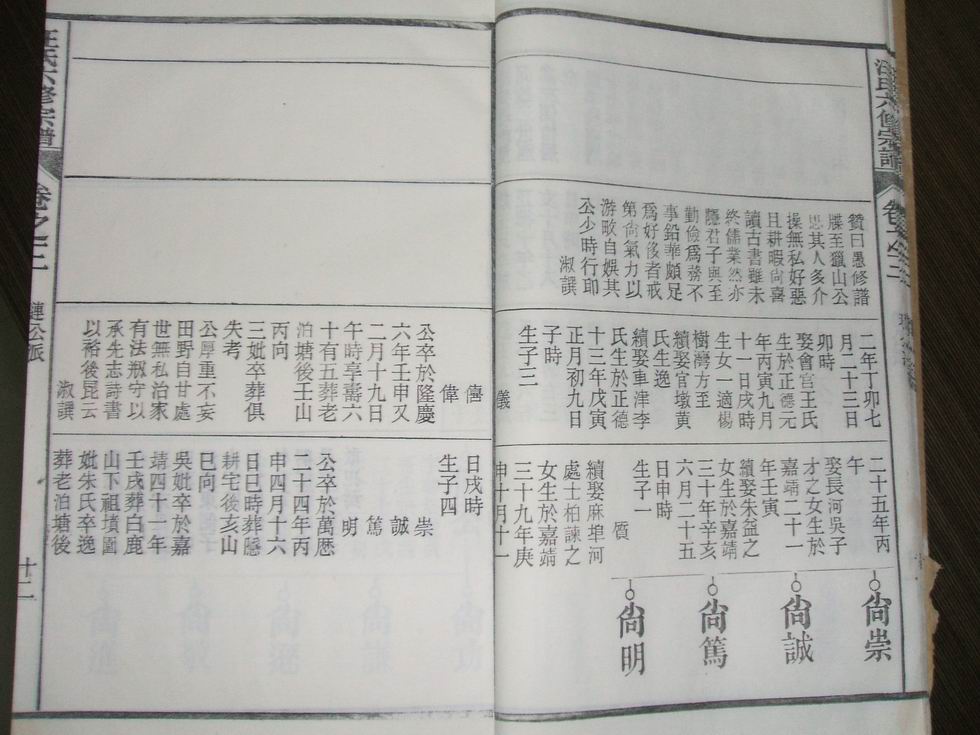 汪氏六修宗譜
卷之二
贊曰愚修譜
牒至獵山公
思其人多介
操無私好惡
且耕暇尚喜
讀古書雖未
終儒業然亦
隱君子與至
勤儉為務不
事鉛華頗足
為好侈者戒
第尚氣力以
游畋自娛其
公少時行卽
淑譔
二年丁卯七
月二十三日
卯時
娶會宮王氏
生於正德元
年丙寅九月
十一日戌時
生女一適楊
樹灣方至
續娶官墩黃
氏生逸
續娶車津李
氏生於正德
十三年戊寅
正月初九日
子時
生子三
儀
僖
偉
公卒於隆慶
六年壬申又
二月十九日
午時享壽六
十有五葬老
泊塘後壬山
丙向
三妣卒葬俱
失考
公厚重不妄
田野自甘處
世無私治家
有法叔守以
承先志詩書
以裕後昆云
淑譔
二十五年丙
午
娶長河吳子
才之女生於
嘉靖二十一
年壬寅
續娶朱益之
女生於嘉靖
三十年辛亥
六月二十五
日申時
生子一
質
續娶麻埠河
處士柏諫之
女生於嘉靖
三十九年庚
申十月十一
日戌時
生子四
崇
誠
篤
明
公卒於萬歷
二十四年丙
申四月十六
日巳時葬隱
耕宅後亥山
巳向
吳妣卒於嘉
靖四十一年
壬戌葬白鹿
山下祖墳圖
妣朱氏卒逸
葬老泊墳後
尙崇
尙誠
尙篤
尙明
汪氏六修宗譜
卷之二
璉公派
十二